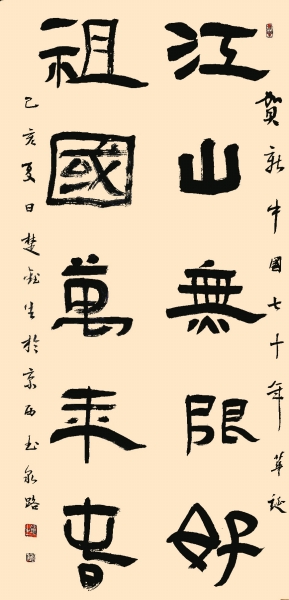 賀新中國七十年華誕
江山無限好
祖國萬年春
己亥夏日楚生於京西玉泉路